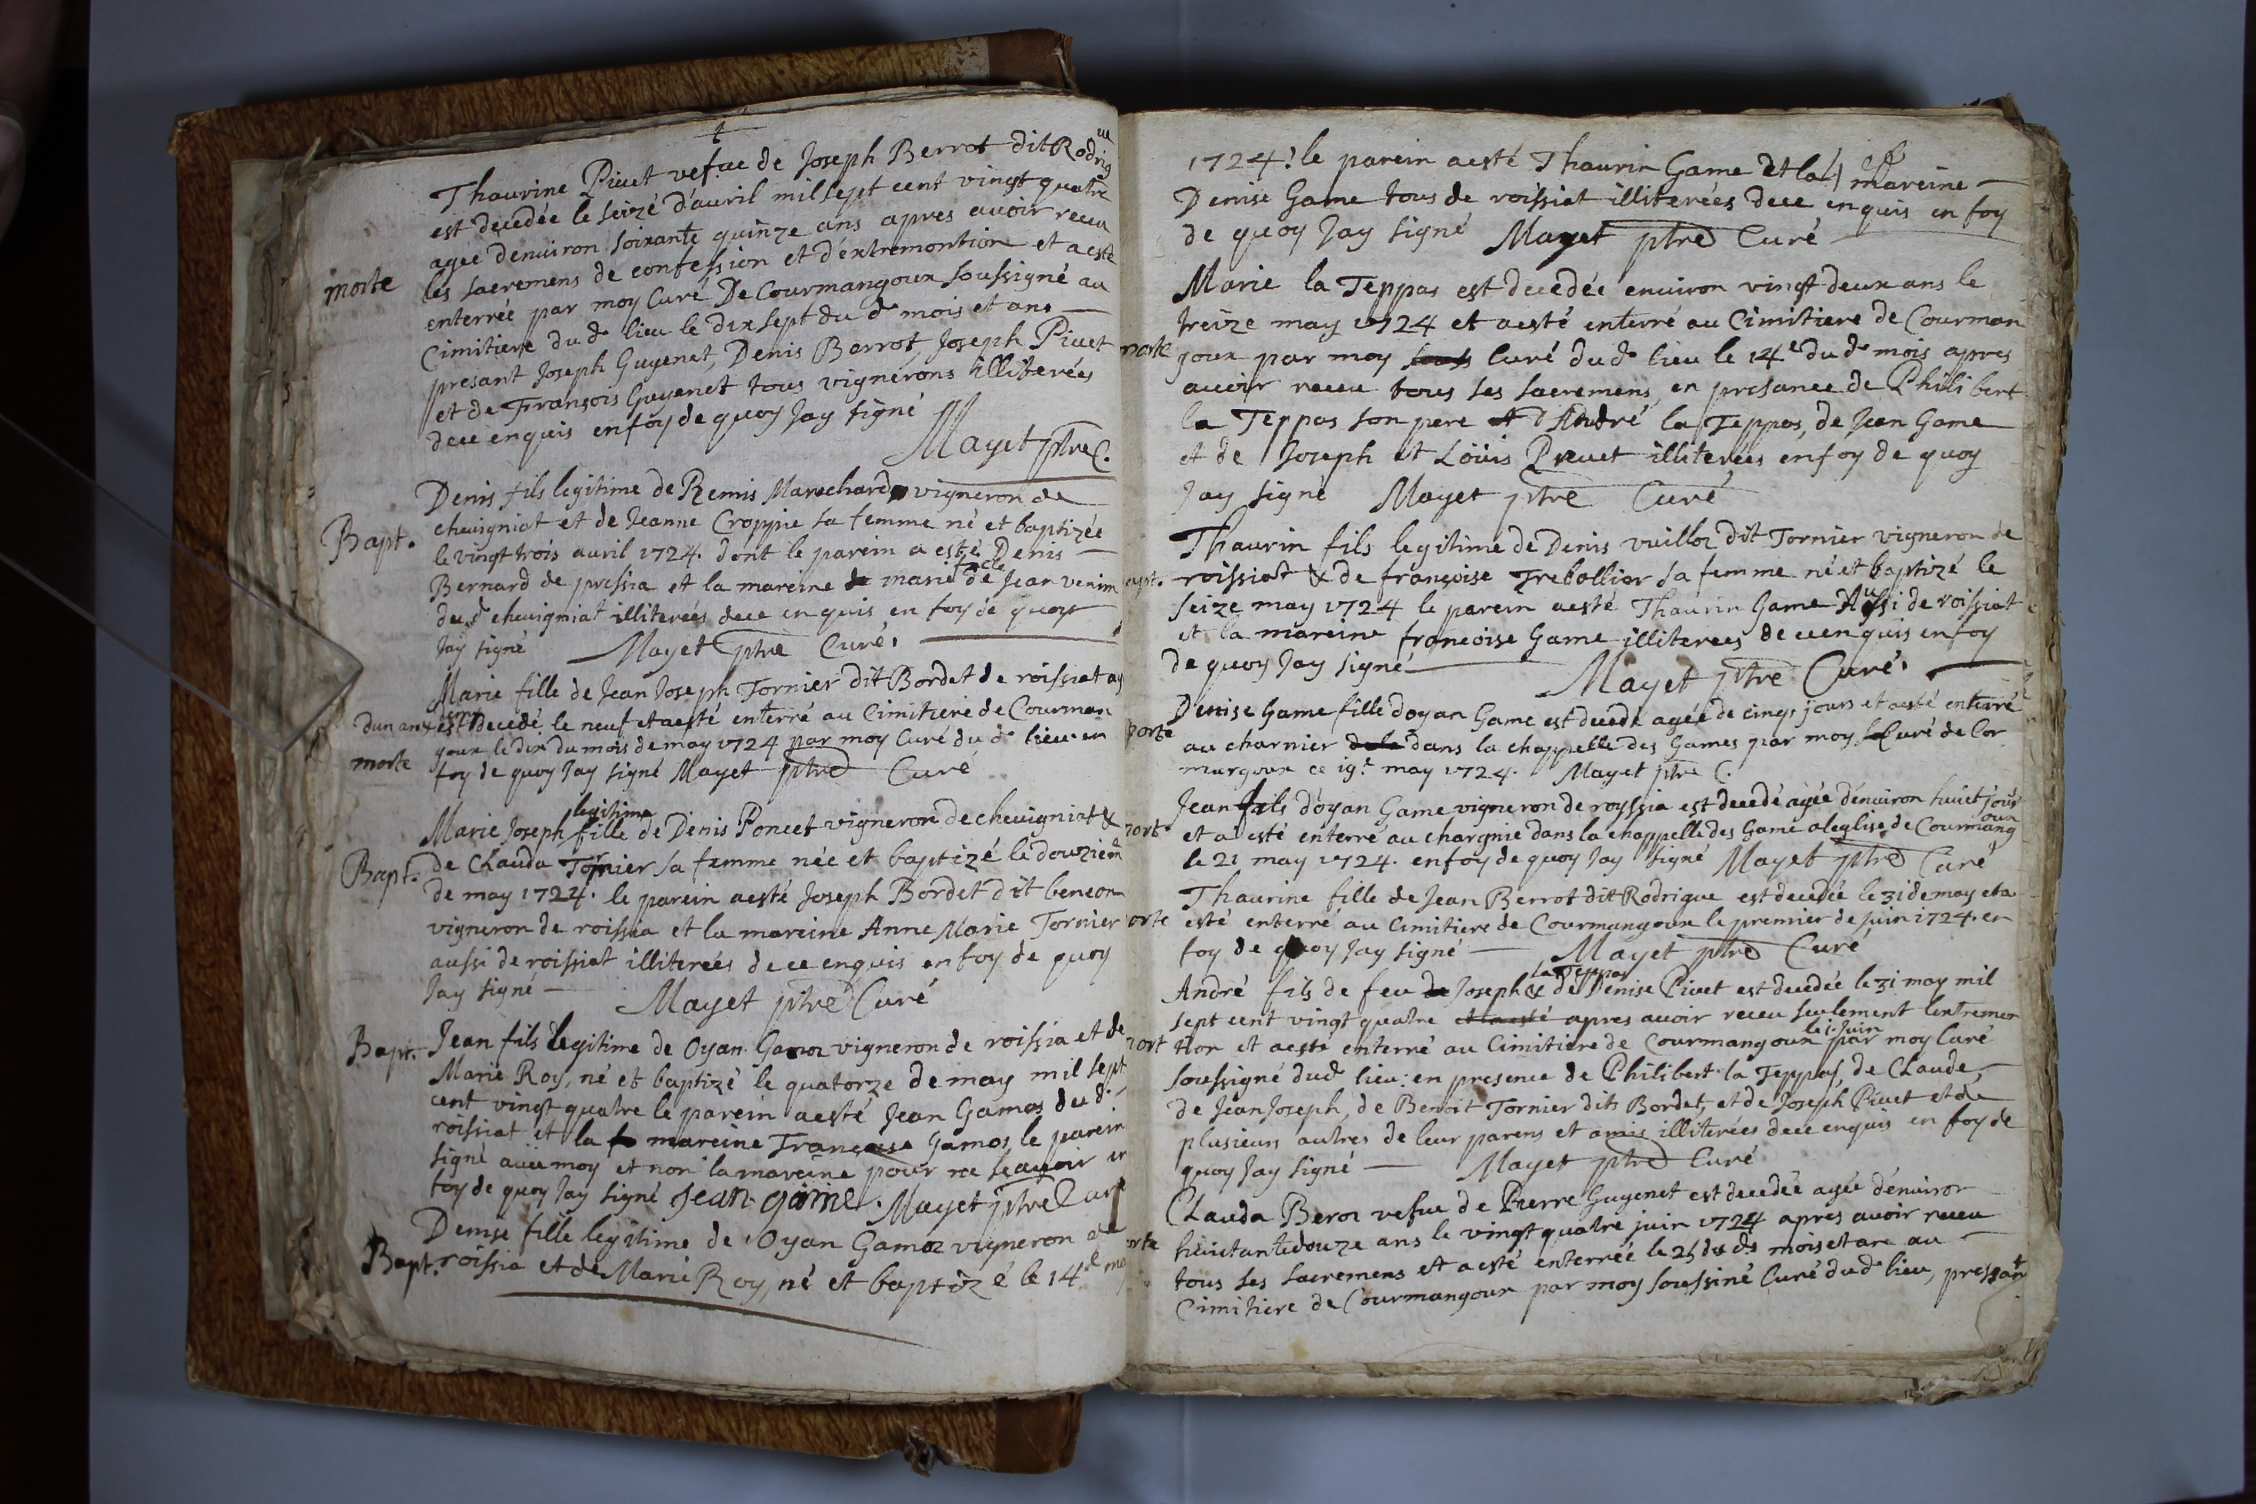 Thaurine Piuet vefue de Joseph Berrot dit Rodrigue
est decedée le seizé d'auril mil sept cent vingt quatre
agee denuiron soixante quinze ans apres auoir receu
les sacremens de confession et d'extremontion et a esté
morte
enterrée par moy Curé De Courmangoux soussigné au
Cimitiere du d. lieu le dix sept du d. mois et ans
presant Joseph Guyenet, Denis Berrot, Joseph Piuet
et de François Guyenet tous vignerons illiterées
dece enquis en foy de quoy Jay signé
Mayet ptre C.
Denis fils legitime de Remis Marechard vigneron de
Bapt.
cheuigniat et de Jeanne Croppie sa femme né et baptizée
le vingt trois auril 1724. dont le parein a esté Denis
Bernard de pressia et la mareine marie de Jean venim
du d. cheuigniat illiterées dece enquis en foy de quoy
Jay signé Mayet ptre Curé.
Marie fille de Jean Joseph Tornier dit Bordet de roissiat ag
dun an est decedé le neuf et aesté enterré au Cimitiere de Courman
goux le dix du mois de may 1724 par moy Curé du d. lieu. en
morte
foy de quoy Jay signé Mayet ptre Curé
Marie Joseph legitime fille de Denis Poncet vigneron de cheuigniat &
Bapt.
de Clauda Tornier sa femme née et baptizé le douziem
de may 1724. le parein aesté Joseph Bordet dit bencon
vigneron de roissia et la mareine Anne Marie Tornier
aussi de roissiat illiterées dece enquis en foy de quoy
Jay signé Mayet ptre Curé
Bapt. Jean fils legitime de Oyan Gamoz vigneron de roissia et de
Marie Roy, né et baptizé le quatorze de may mil sept
cent vingt quatre le parein aesté Jean Gamos du d.
roissiat et la mareine Françoise Gamos le parein
signé auec moy et non la mareine pour ne scauoir en
foy de quoy Jay signé Jean game. Mayet ptre Curé
Denise fille legitime de Oyan Gamoz vigneron de
Bapt. roissia et de Marie Roy, né et baptizé le 14e may
1724. le parein aesté Thaurin Game et la mareine
Denise Game tous de roissiat illiterées dece enquis en foy
de quoy Jay signé Mayet ptre Curé
Marie la Teppas est decedée enuiron vingt deux ans le
treize may 1724 et aesté enterré au Cimitiere de Courman
morte
goux par moy Curé du d. lieu le 14e du d. mois apres
auoir receu tous ses sacremens, en presance de Philibert
la Teppas son pere d'André la Teppas, de Jean Game
et de Joseph et Loüis Preuet illiterées en foy de quoy
Jay signé Mayet ptre Curé
Thaurin fils legitime de Denis vuilloz dit Tornier vigneron de
apt. roissiat & de françoise Trebollier sa femme né et baptizé le
seize may 1724 le parein aesté Thaurin Game Aussi de roissiat
et la mareine francoise Game illiterees de ce enquis en foy
de quoy Jay signé Mayet ptre Curé.
Denise Game fille doyan Game est decede agée de cinqs jours et aesté enterré
morte
au charnier dans la chappelle des Games par moy Curé de Cor
murgoux ce 19e may 1724. Mayet ptre C.
Jean fils d'oyan Game vigneron de royssia est decedé agée denuiron huict jour
mort
et a esté enterré au chargnie dans la chappelle des Game a leglise de Courmangoux
le 21 may 1724. en foy de quoy Jay signé Mayet ptre Curé
Thaurine fille de Jean Berrot dit Rodrigue est decedée le 31 de may et a
orte
esté enterré au Cimitiere de Courmangoux le premier de Juin 1724. en
foy de quoy Jay signé Mayet ptre Curé
André fils de feu Joseph la Teppas & de Denise Piuet est decedée le 31 may mil
sept cent vingt quatre apres auoir receu seulement lextremon
mort
tion et aesté enterré au Cimitiere de Courmangoux le 1. Juin par moy Curé
soussigné du d. lieu: en presence de Philibert la Teppas, de Claude,
de Jean Joseph, de Benoit Tornier dits Bordet, et de Joseph Piuet et de
plusieurs autres de leur parens et amis illiterées dece enquis en foy de
quoy Jay signé Mayet ptre Curé
Clauda Beroz vefue de Pierre Guyenet est decedée agée denuiron
orte
huictante douze ans le vingt quatre juin 1724 apres auoir receu
tous ses sacremens et aesté enterreé le 25 du d. mois et an au
Cimitiere de Courmangoux par moy soussiné Curé du d. lieu, presant